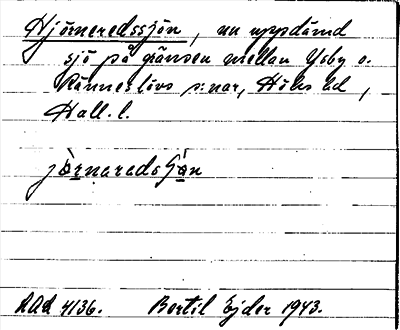 Hjörneredssjön, nu uppdämd
sjö på gränsen mellan Ysby o.
Ränneslövs s:nar, Höks hd,
Hall. l.
AAd 4136. Bertil Ejder 1943.